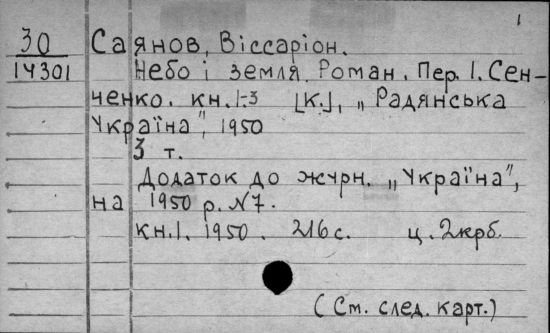 1
30 Саянов, Віссаріон.
14301 Небо і земля. Роман. Пер. І. Сен-
ченко. кн. 1-3 [К.], „Радянська
Україна", 1950
3 т.
Додаток до журн. „Україна",
на 1950 р. N 7.
кн. 1. 1950. 216 с. ц. 2 крб.
(См. след. карт.)